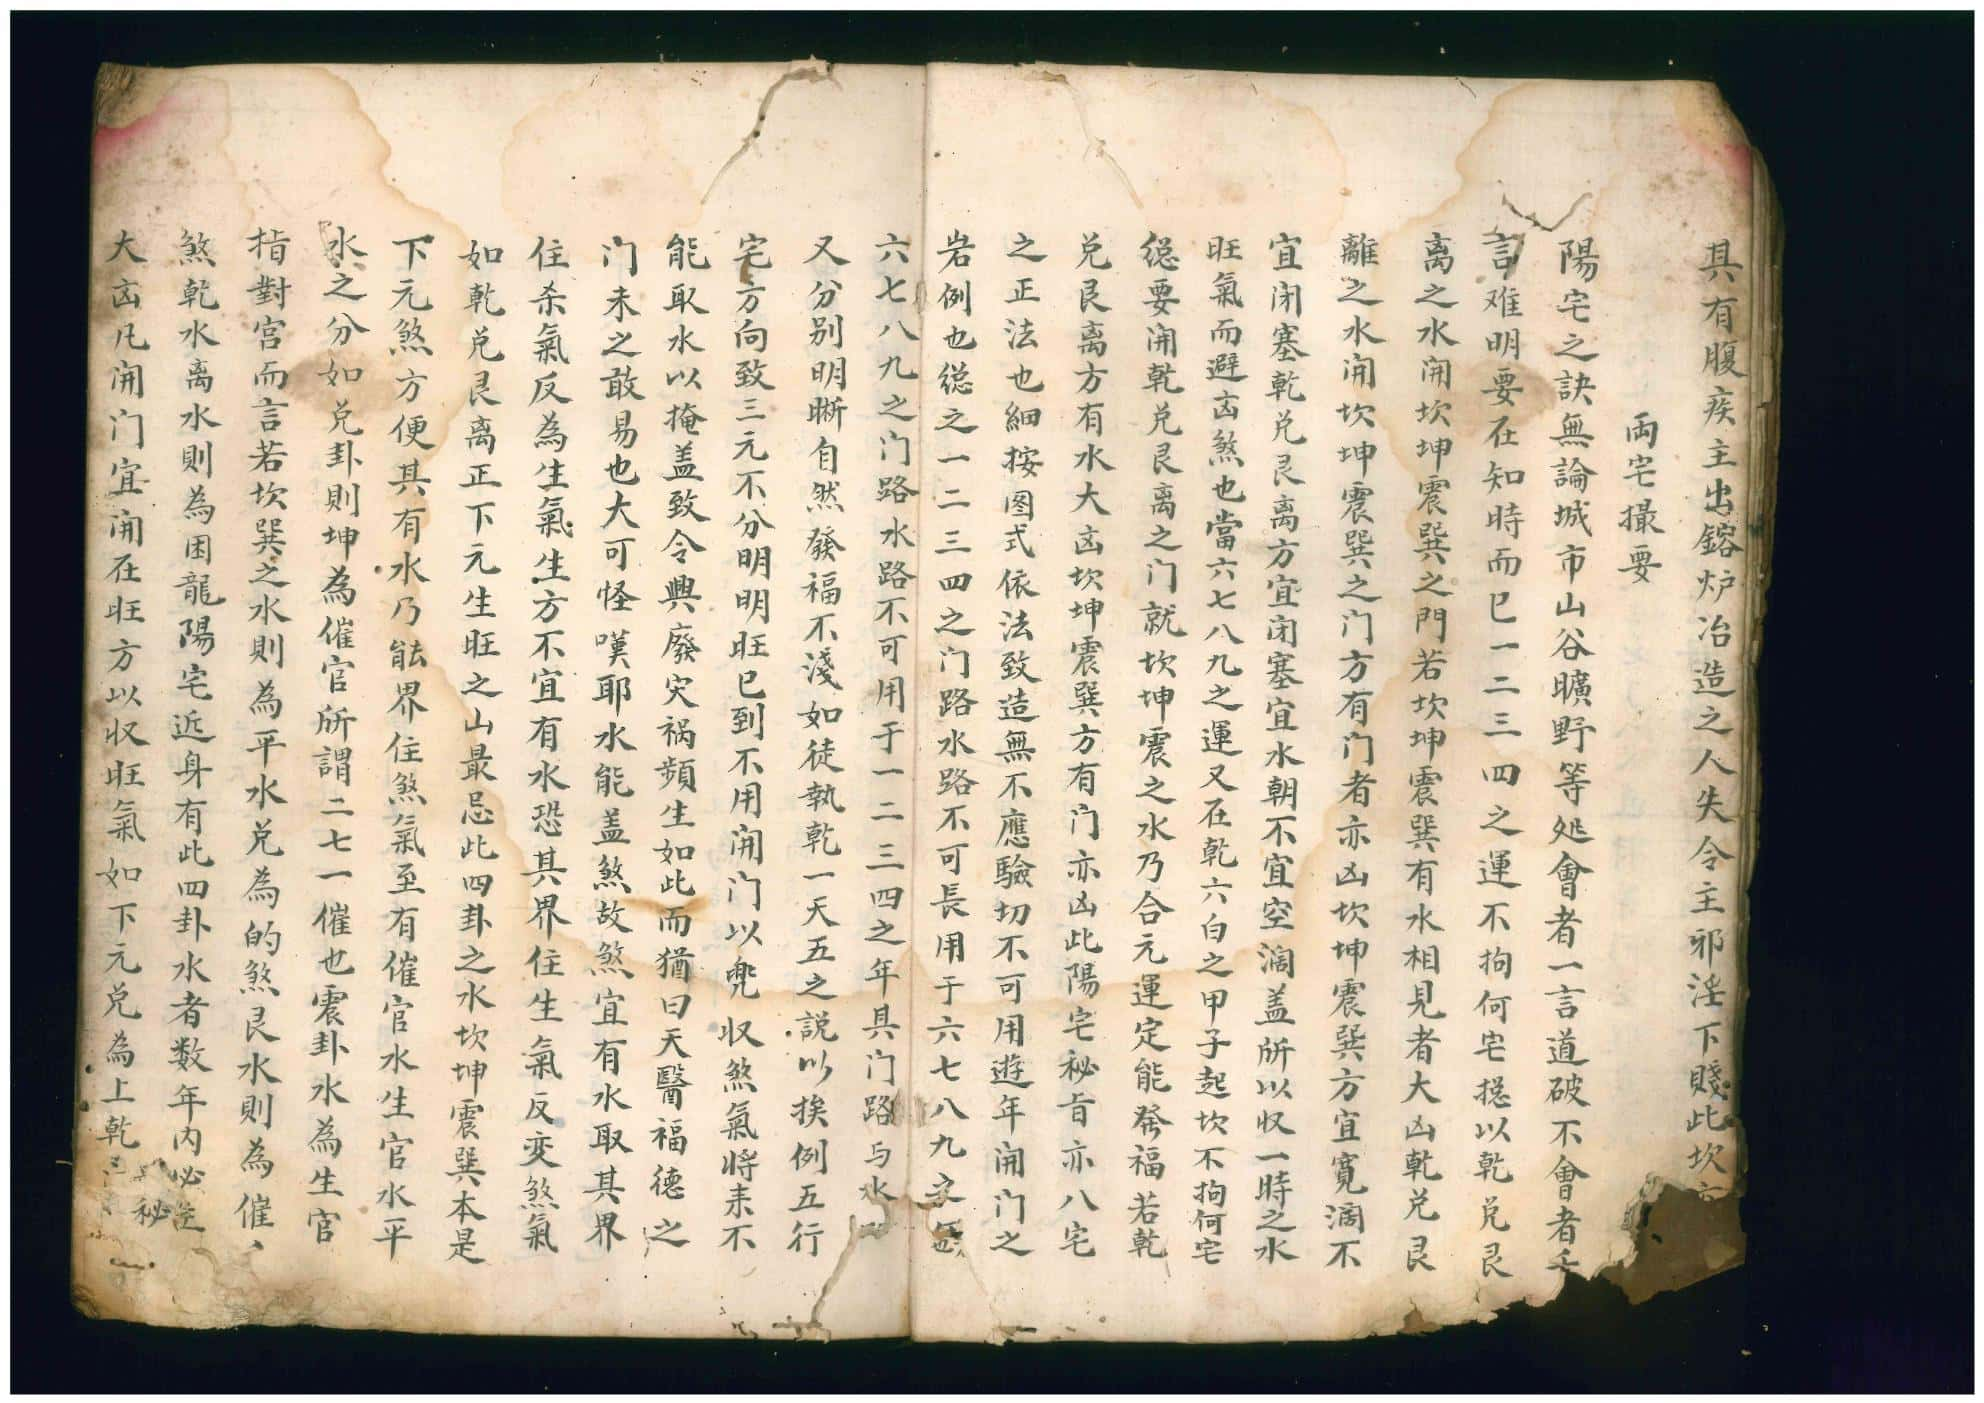 具有腹疾主出鎔炉冶造之人失令主邪淫下賤此坎
両宅撮要
陽宅之訣無論城市山谷曠野等処會者一言道破不會者千
言难明要在知時而已一二三四之運不拘何宅搃以乾兑艮
离之水開坎坤震巽之門若坎坤震巽有水相見者大凶乾兑艮
離之水開坎坤震巽之门方有门者亦凶坎坤震巽方宜寬濶不
宜闭塞乾兑艮离方宜闭塞宜水朝不宜空濶盖所以收一時之水
旺氣而避凶煞也當六七八九之運又在乾六白之甲子起坎不拘何宅
總要開乾兑艮离之门就坎坤震之水乃合元運定能發福若乾
兑艮离方有水大凶坎坤震巽方有门亦凶此陽宅秘旨亦八宅
之正法也細按图式依法致造無不應驗切不可用遊年開门之
岩例也總之一二三四之门路水路不可長用于六七八九之年
六七八九之门路水路不可用于一二三四之年具门路与水
又分别明晰自然發福不淺如徒執乾一天五之説以挨例五行
宅方向致三元不分明明旺已到不用開门以兜收煞氣将耒不
能取水以掩盖致令興廢灾祸頻生如此而猶曰天醫福德之
门未之敢易也大可怪嘆耶水能盖煞故煞宜有水取其界
住杀氣反為生氣生方不宜有水恐其界住生氣反变煞氣
如乾兑艮离正下元生旺之山最忌此四卦之水坎坤震巽本是
下元煞方便其有水乃能界住煞氣至有催官水生官水平
水之分如兑卦則坤為催官所謂二七一催也震卦水為生官
指對宮而言若坎巽之水則為平水兑為的煞艮水則為催、
煞乾水离水則為困龍陽宅近身有此四卦水者数年内必
大凶凡開门宜開在旺方以收旺氣如下元兑為上乾
秘一